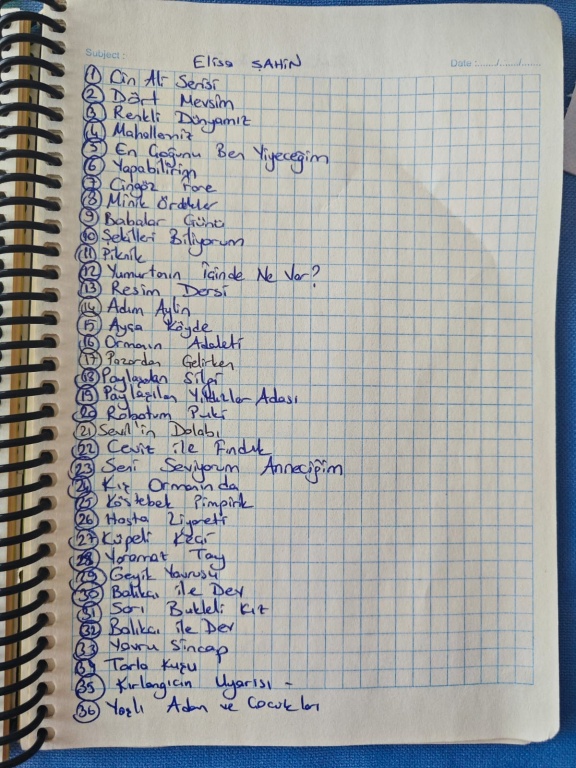 Subject :
Elisa ŞAHİN
Date :....../....../......
1 Cin Ali Serisi
2 Dört Mevsim
3 Renkli Dünyamız
4 Mahallemiz
5 En Çoğunu Ben Yiyeceğim
6 Yapabilirim
7 Cingöz Fare
8 Minik Ördekler
9 Babalar Günü
10 Şekilleri Biliyorum
11 Piknik
12 Yumurtanın İçinde Ne Var?
13 Resim Dersi
14 Adım Aylin
15 Ayşa Köyde
16 Ormanın Adaleti
17 Pazardan Gelirken
18 Paylaşılan Silgi
19 Paylaşılan Yıldızlar Adası
20 Robotum Puki
21 Sevil'in Dolabı
22 Ceviz ile Fındık
23 Seni Seviyorum Anneciğim
24 Kız Ormanında
25 Köstebek Pimpirik
26 Hasta Ziyareti
27 Küpeli Keçi
28 Yaramaz Tay
29 Geyik Yavrusu
30 Balıkçı ile Dev
31 Sarı Bukleli Kız
32 Balıkçı ile Dev
33 Yavru Sincap
34 Tarla Kuşu
35 Kırlangıcın Uyarısı -
36 Yaşlı Adam ve Çocukları